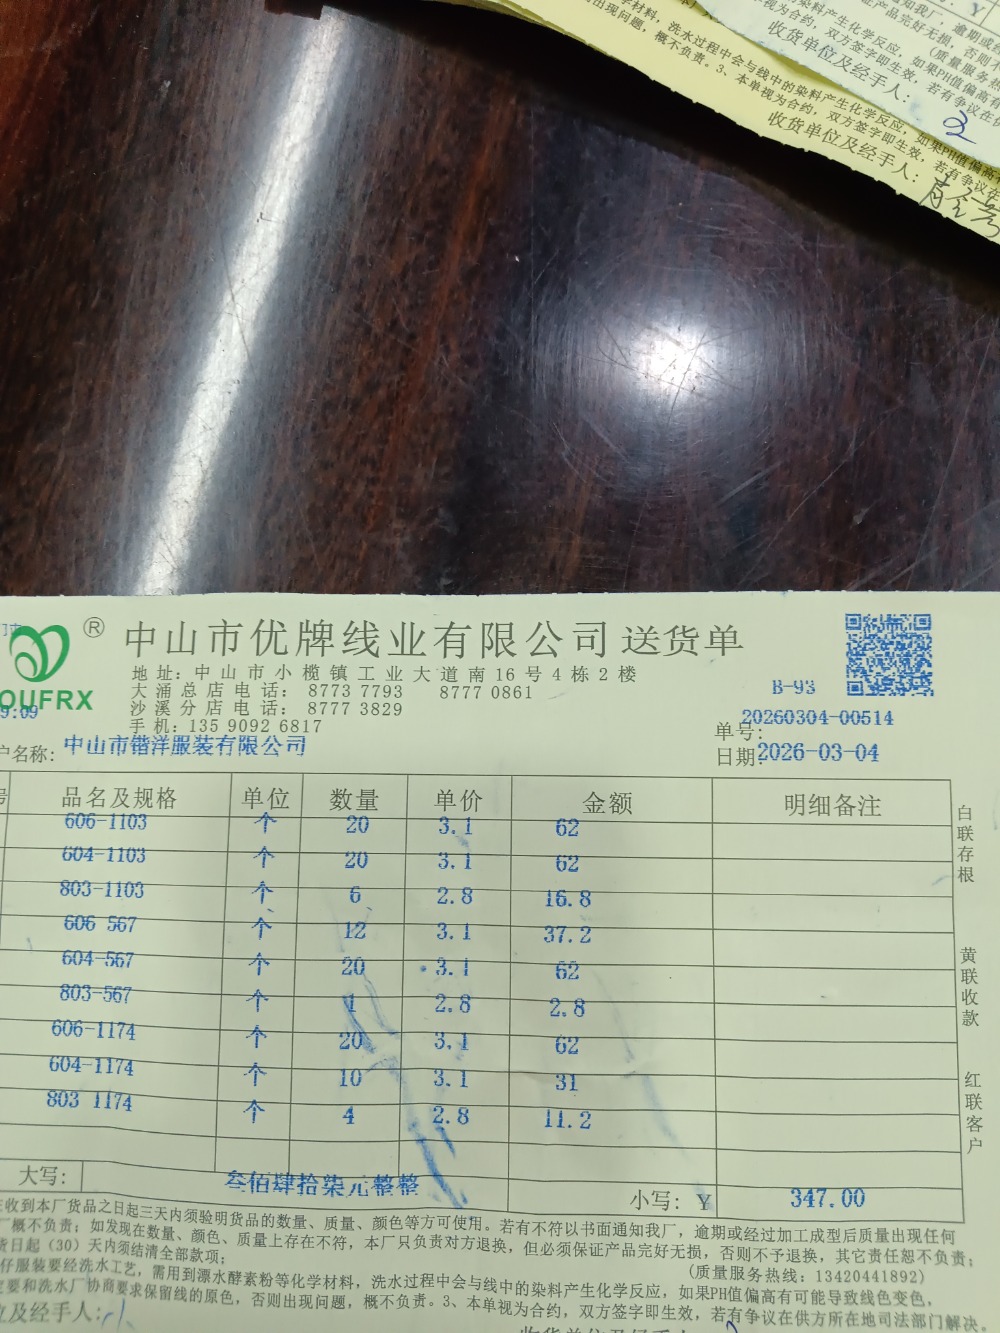 学材料，洗水过程中会与线中的染料产生化学反应，如果PH值偏高有
出现问题，概不负责。3、本单视为合约，双方签字即生效，若有争议在
收货单位及经手人：
2
材料，洗水过程中会与线中的染料产生化学反应，如果PH值偏高
出现问题，概不负责。3、本单视为合约，双方签字即生效，若有争议在
收货单位及经手人：
OUFRX
®
中山市优牌线业有限公司 送货单
地址：中山市小榄镇工业大道南16号4栋2楼
大涌总店电话： 8773 7793 8777 0861
沙溪分店电话： 8777 3829
手机：135 9092 6817
B-93
9:09
单号：20260304-00514
户名称：中山市锴洋服装有限公司
日期：2026-03-04
号 品名及规格 单位 数量 单价 金额 明细备注
606-1103 个 20 3.1 62
604-1103 个 20 3.1 62
803-1103 个 6 2.8 16.8
606 567 个 12 3.1 37.2
604-567 个 20 3.1 62
803-567 个 1 2.8 2.8
606-1174 个 20 3.1 62
604-1174 个 10 3.1 31
803 1174 个 4 2.8 11.2
大写： 叁佰肆拾柒元整整 小写：Y 347.00
白联存根
黄联收款
红联客户
在收到本厂货品之日起三天内须验明货品的数量、质量、颜色等方可使用。若有不符以书面通知我厂，逾期或经过加工成型后质量出现任何
厂概不负责；如发现在数量、颜色、质量上存在不符，本厂只负责对方退换，但必须保证产品完好无损，否则不予退换，其它责任恕不负责；
货日起（30）天内须结清全部款项；
(质量服务热线：13420441892)
仔服装要经洗水工艺，需用到漂水酵素粉等化学材料，洗水过程中会与线中的染料产生化学反应，如果PH值偏高有可能导致线色变色，
定要和洗水厂协商要求保留线的原色，否则出现问题，概不负责。3、本单视为合约，双方签字即生效，若有争议在供方所在地司法部门解决。
位及经手人：
收货单位及经手人